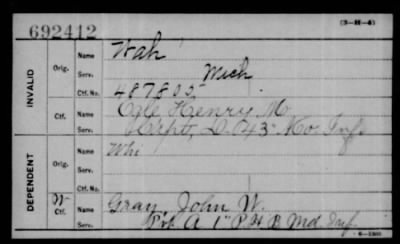 692412
(3-H-6)
INVALID
Orig.
Name
Wah
Serv.
Mich
Ctf. No.
487805
Ctf.
Name
Ogle Henry M.
Serv.
Capt, D. 43" Mo. Inf.
DEPENDENT
Orig.
Name
Whi
Serv.
Ctf. No.
W
Ctf.
Name
Gray, John W.
Serv.
Pvt A 1" P H B Md Inf.